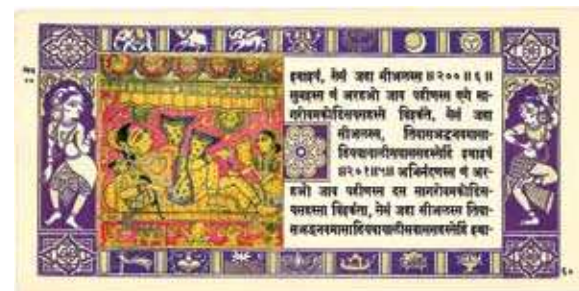 इवाइयं, सेसं जहा सीअलस्स ॥२००॥६॥
सुमइस्स णं अरहओ जाव पहीणस्स एगे सा-
गरोवमकोडिसयसहस्से विइक्कंते, सेसं जहा
सीअलस्स, तिवासअद्धनवमासा-
हियबायालीसवाससहस्सेहिं इच्चाइयं
॥२०१॥५॥ अभिनंदणस्स णं अर-
हओ जाव पहीणस्स दस सागरोवमकोडिस-
यसहस्सा विइक्कंता, सेसं जहा सीअलस्स तिवा-
सअद्धनवमासाहियबायालीसवाससहस्सेहिं इच्चा-
६०